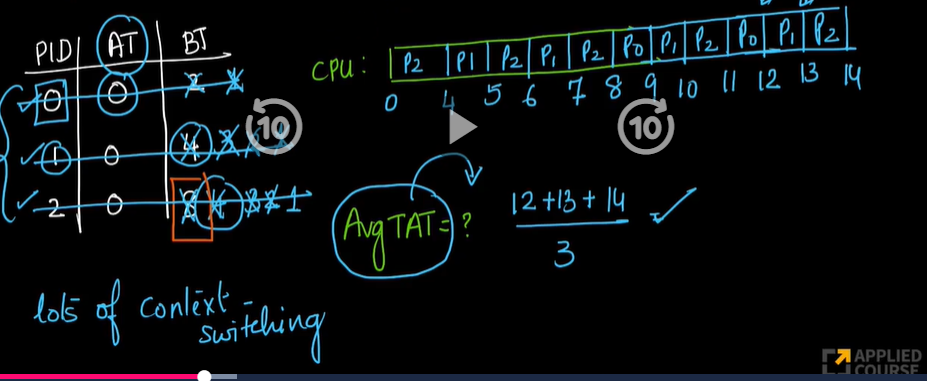 PID AT BT
0 0 2 1
1 0 4 3
2 0 8 4 3 2 1
CPU: P2 P1 P2 P1 P2 P0 P1 P2 P0 P1 P2
0 4 5 6 7 8 9 10 11 12 13 14
10 10
Avg TAT = ? 12+13+14
3
lots of context-
switching
APPLIED
COURSE